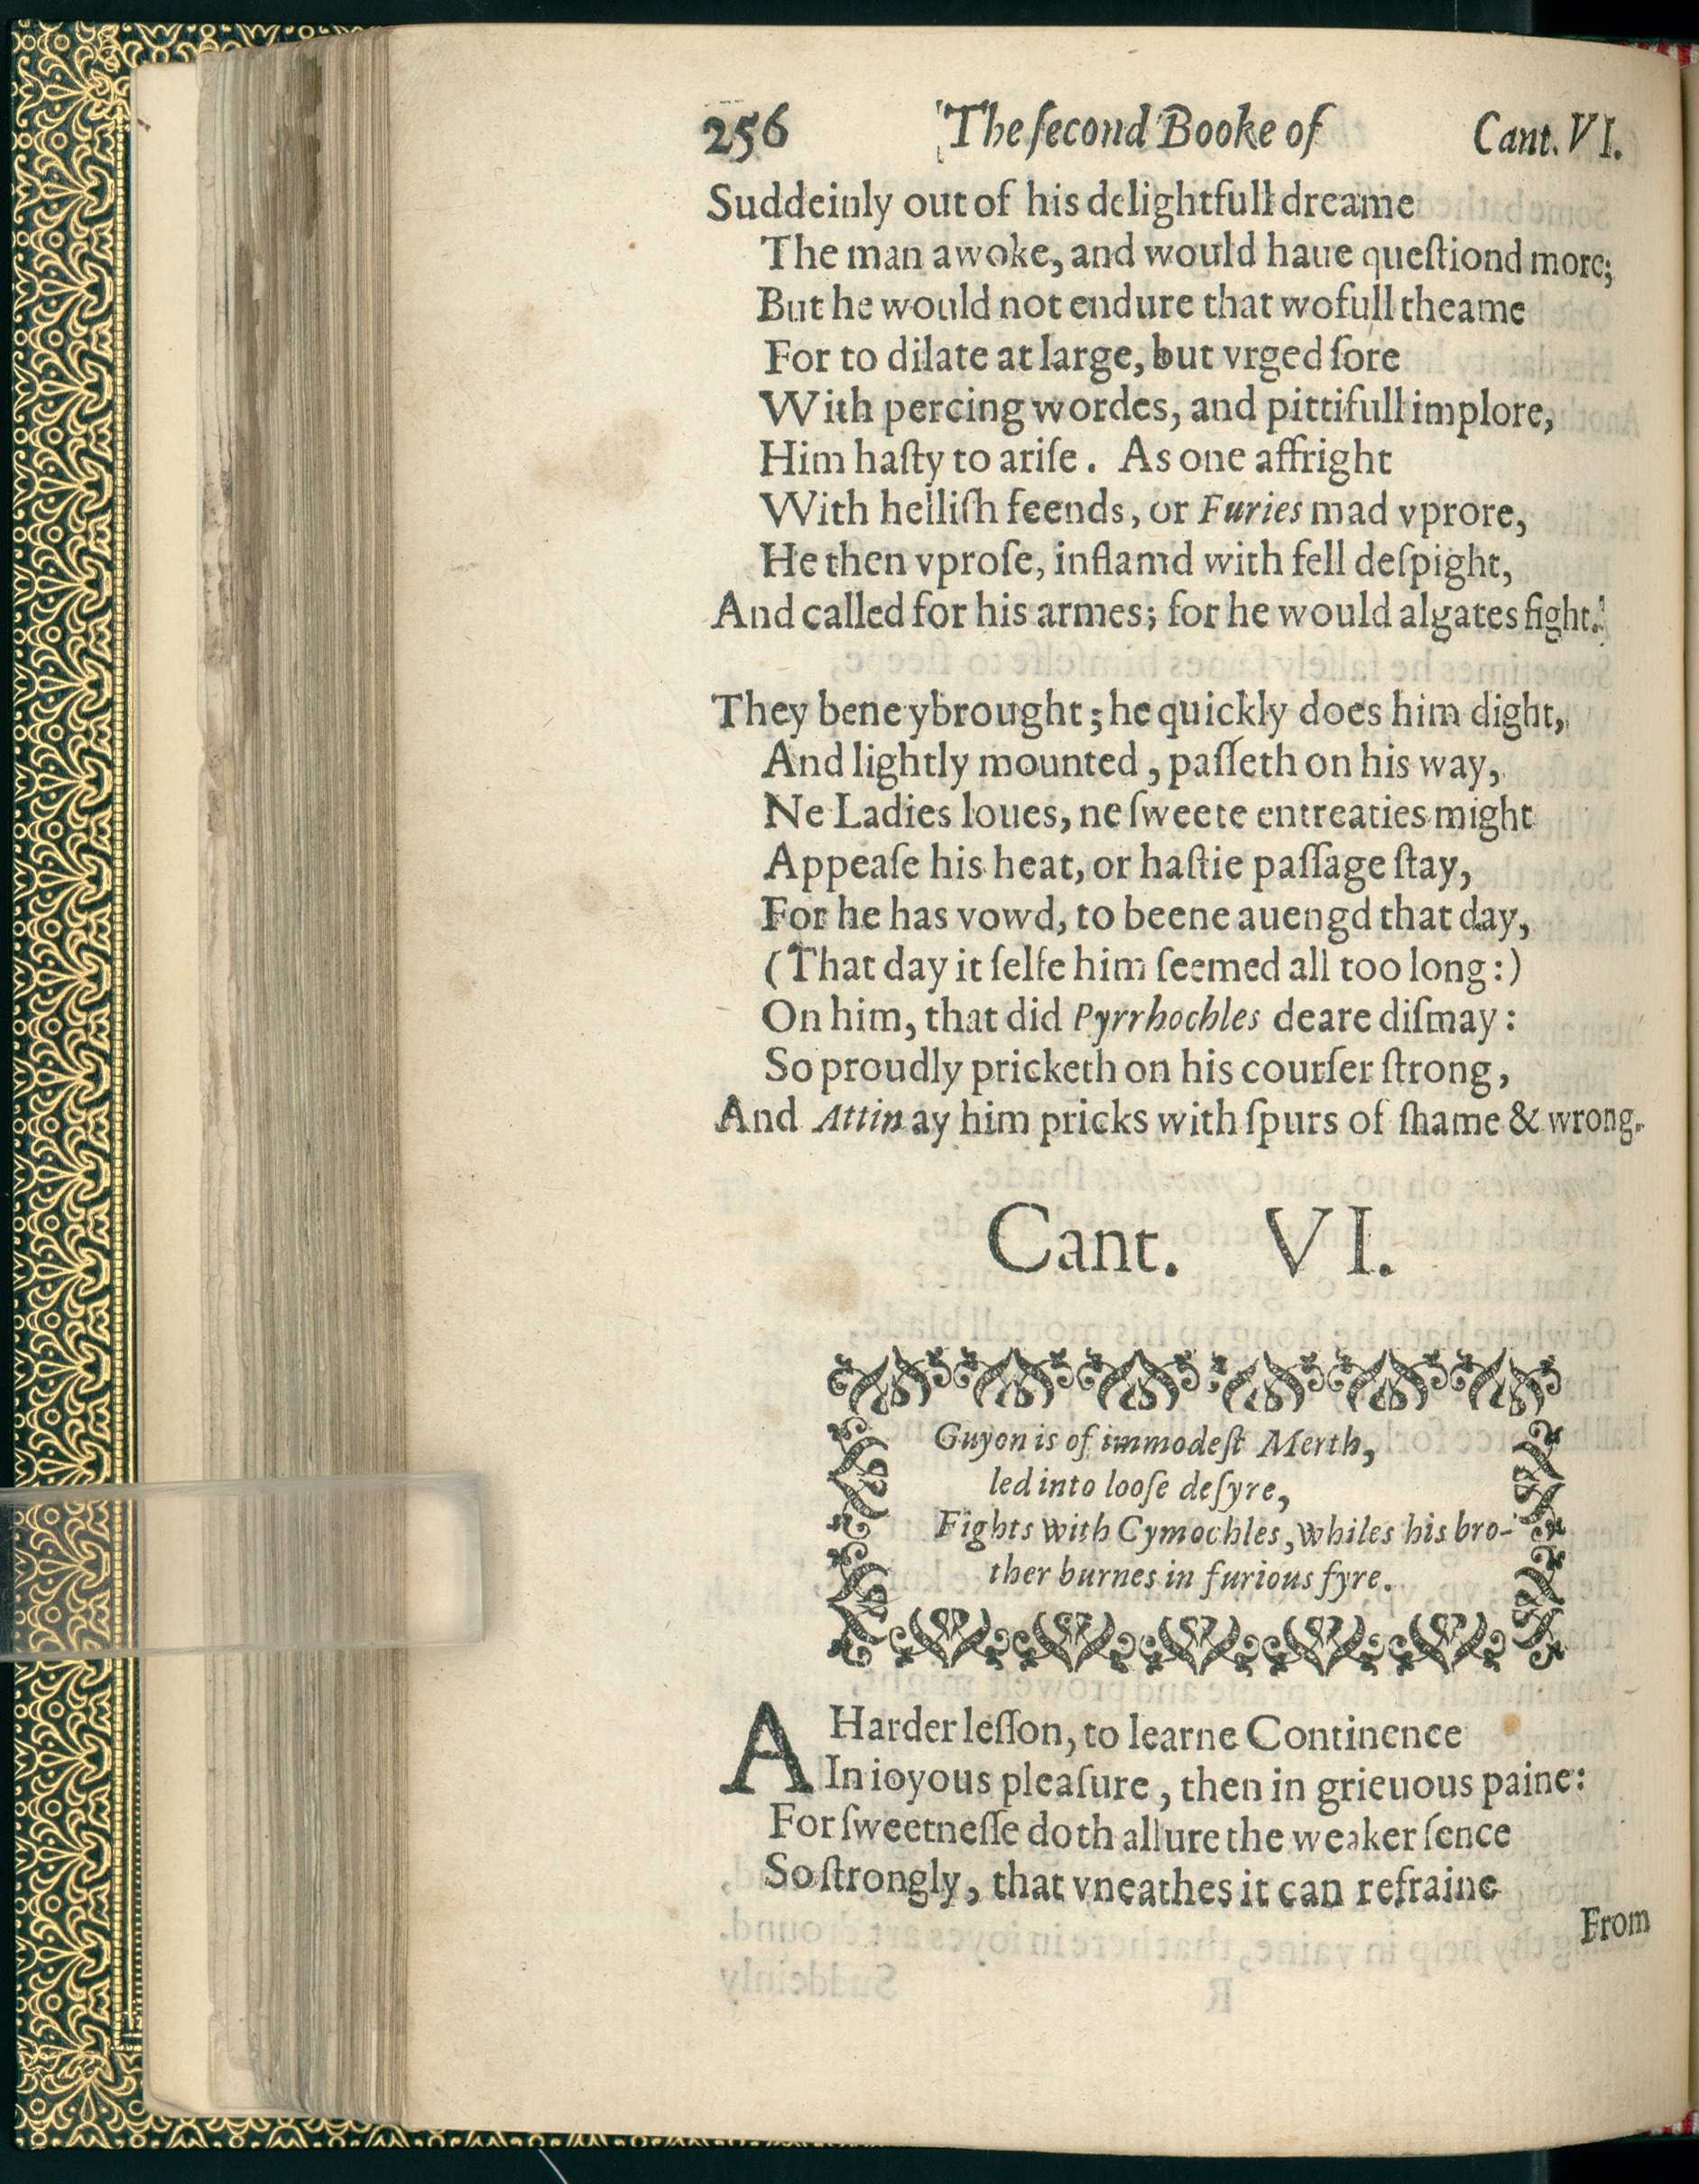 256 The ſecond Booke of Cant. VI.
Suddeinly out of his delightfull dreame
The man awoke, and would haue queſtiond more;
But he would not endure that wofull theame
For to dilate at large, but vrged ſore
With percing wordes, and pittifull implore,
Him haſty to ariſe. As one affright
With helliſh feends, or Furies mad vprore,
He then vproſe, inflamd with fell deſpight,
And called for his armes; for he would algates fight.
They bene ybrought; he quickly does him dight,
And lightly mounted, paſſeth on his way,
Ne Ladies loues, ne ſweete entreaties might
Appeaſe his heat, or haſtie paſſage ſtay,
For he has vowd, to beene auengd that day,
(That day it ſelfe him ſeemed all too long:)
On him, that did Pyrrhochles deare diſmay:
So proudly pricketh on his courſer ſtrong,
And Attin ay him pricks with ſpurs of ſhame & wrong.
Cant. VI.
Guyon is of immodeſt Merth,
led into looſe deſyre,
Fights with Cymochles, whiles his bro-
ther burnes in furious fyre.
A Harder leſſon, to learne Continence
In ioyous pleaſure, then in grieuous paine:
For ſweetneſſe doth allure the weaker ſence
So ſtrongly, that vneathes it can refraine
From